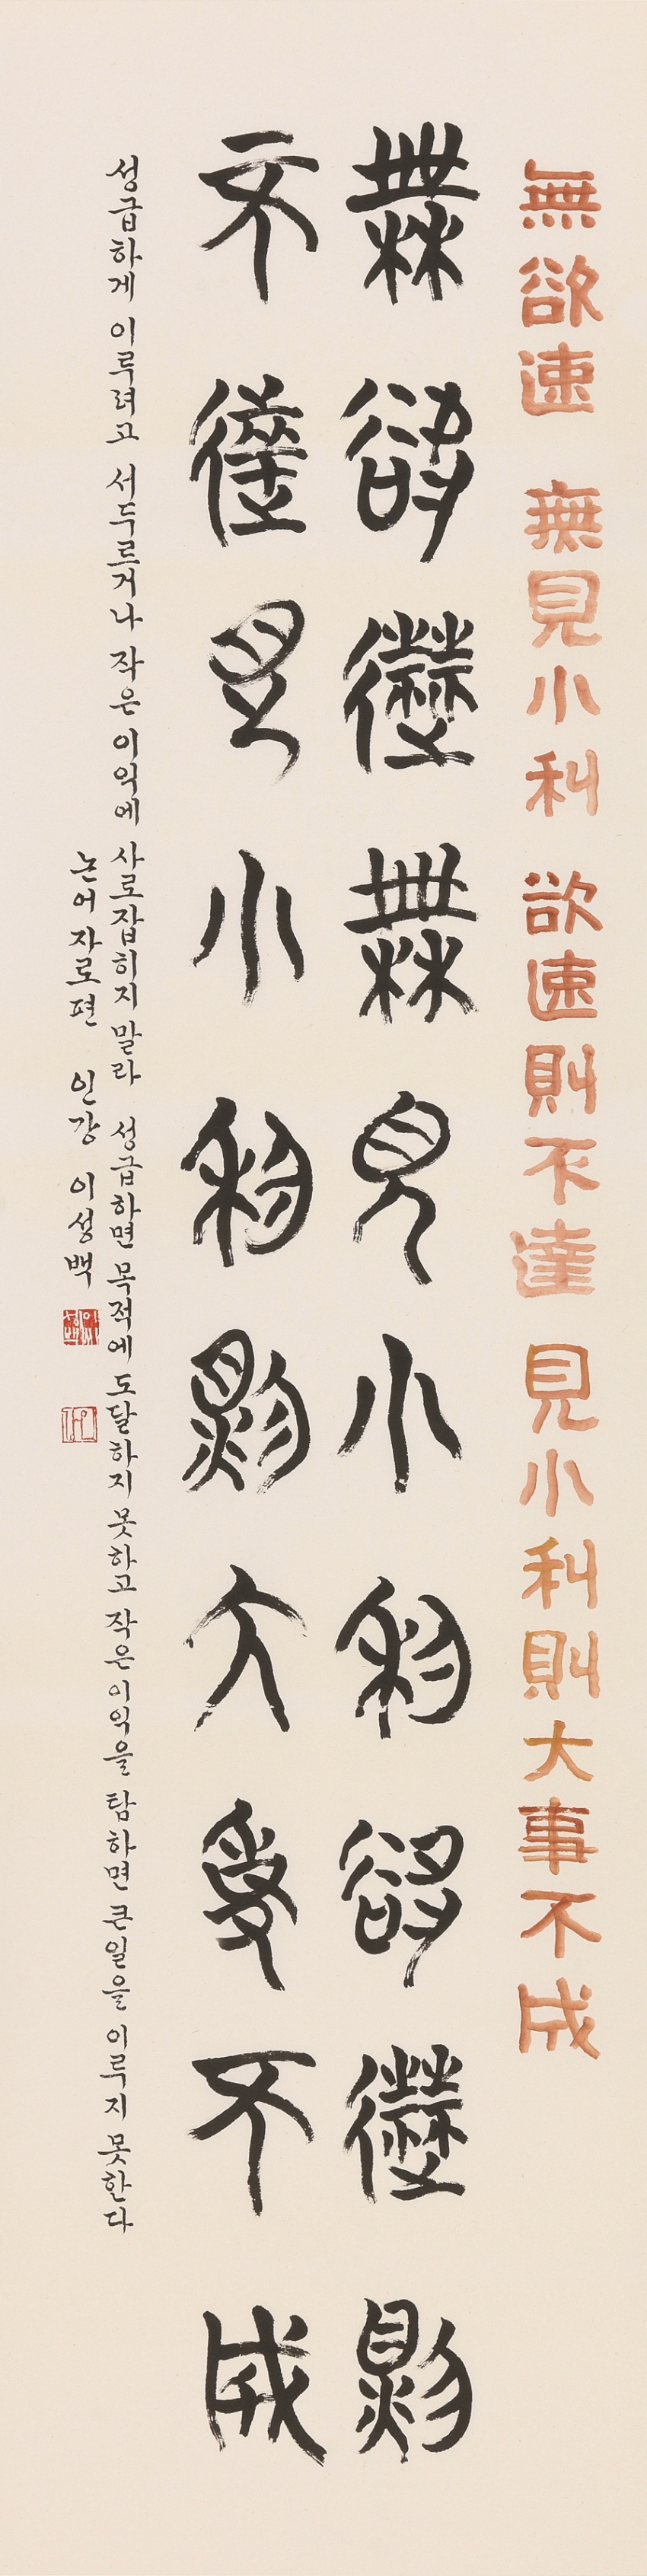 無欲速 無見小利 欲速則不達 見小利則大事不成
無欲速無見小利欲速則
不達見小利則大事不成
성급하게 이루려고 서두르거나 작은 이익에 사로잡히지 말라 성급하면 목적에 도달하지 못하고 작은 이익을 탐하면 큰 일을 이루지 못한다
논어 자로편 인강 이성백